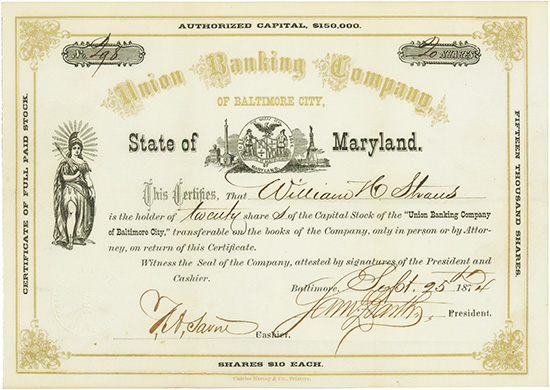 AUTHORIZED CAPITAL, $150,000.
No 298
20 SHARES
Union Banking Company,
OF BALTIMORE CITY,
State of Maryland.
CERTIFICATE OF FULL PAID STOCK.
FIFTEEN THOUSAND SHARES.
This Certifies, That William H Straus
is the holder of twenty share s of the Capital Stock of the "Union Banking Company
of Baltimore City," transferable on the books of the Company, only in person or by Attor-
ney, on return of this Certificate.
Witness the Seal of the Company, attested by signatures of the President and
Cashier.
Baltimore, Sept. 25th 1874
President.
Cashier.
SHARES $10 EACH.